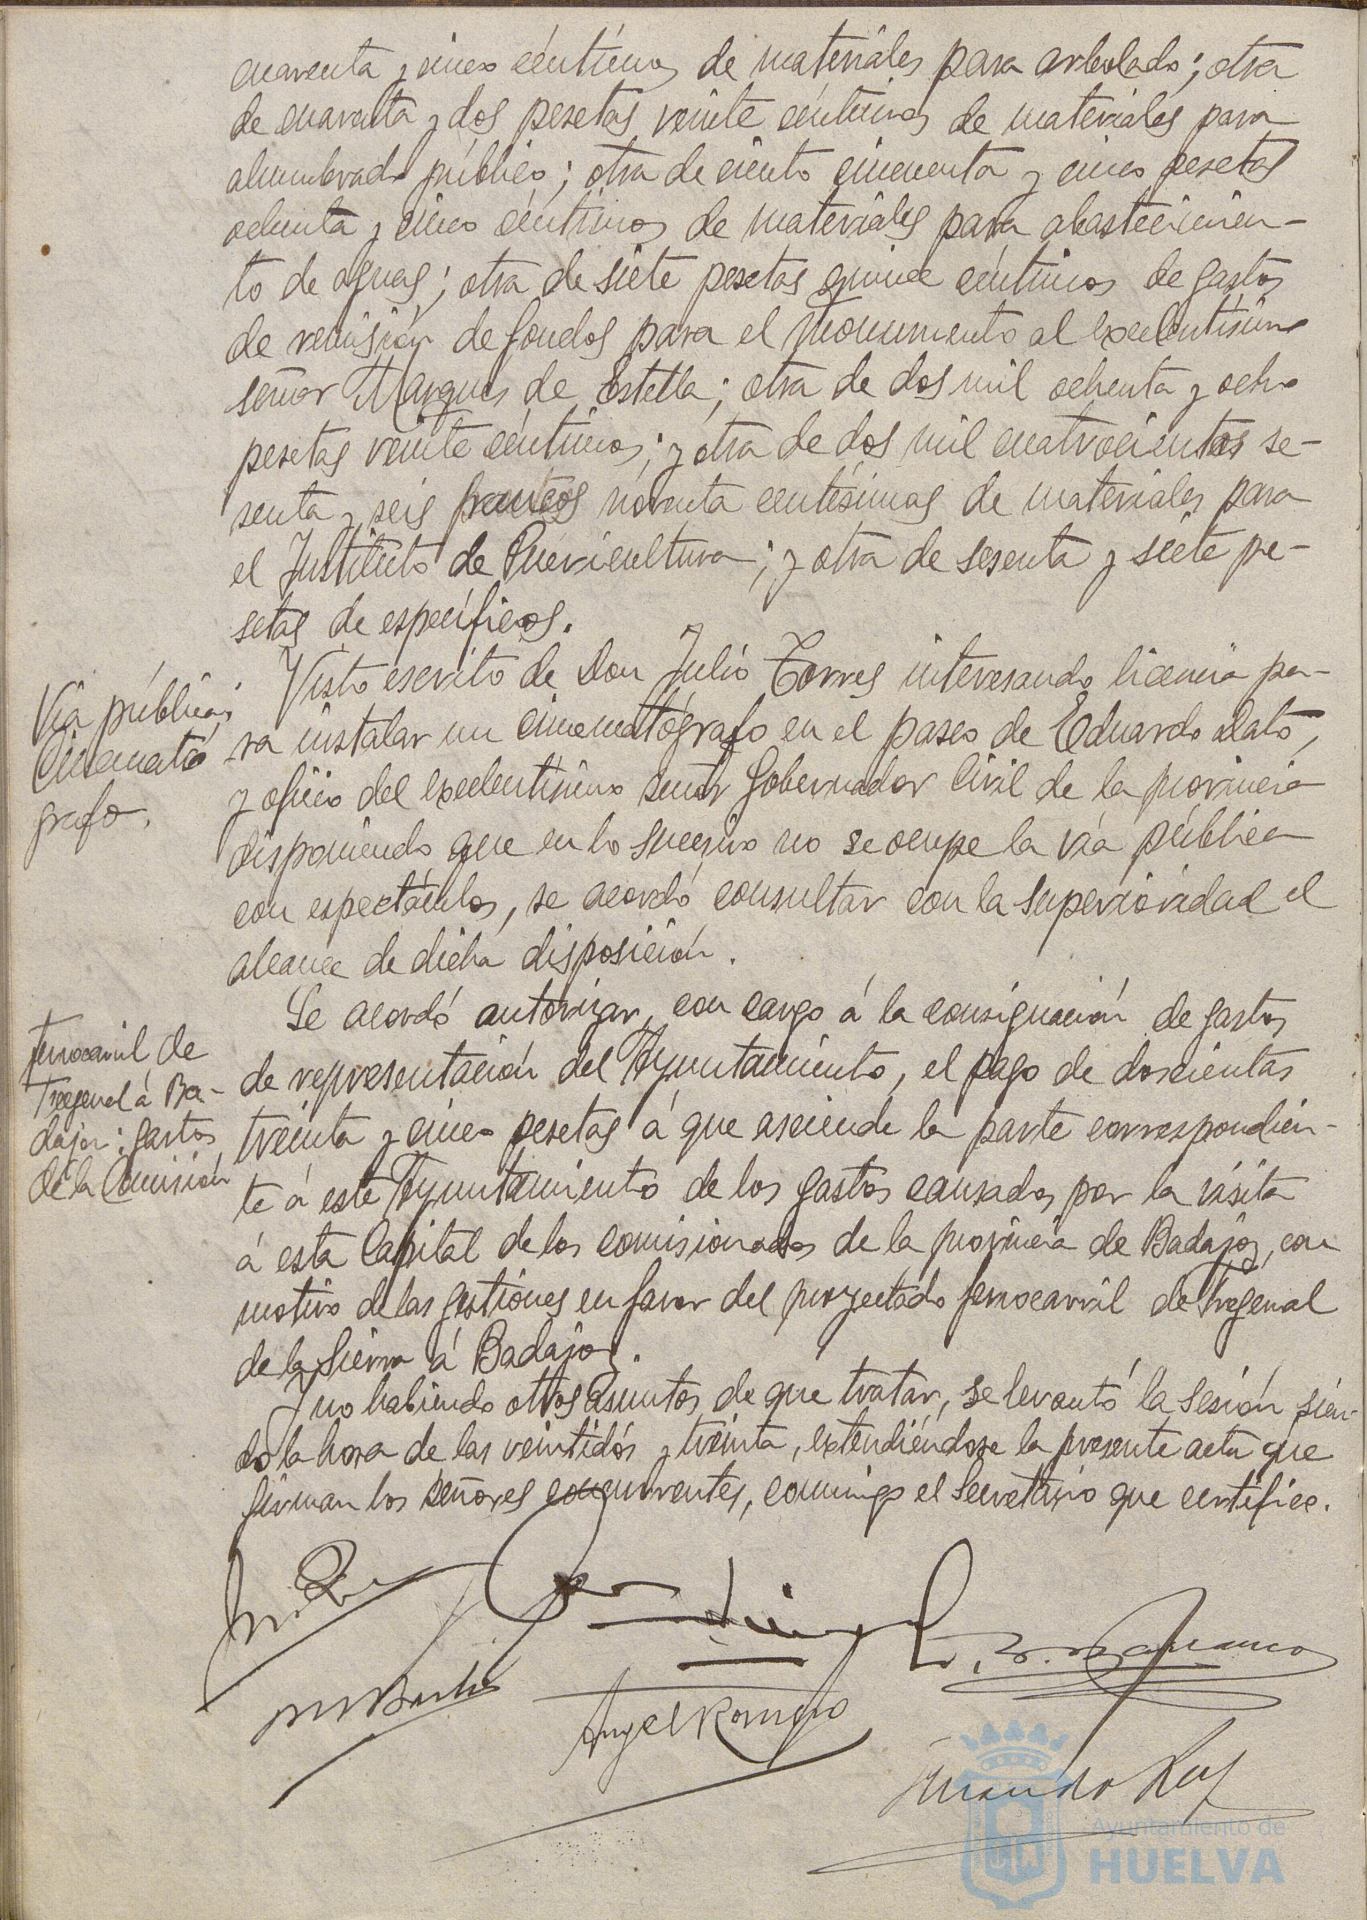 cuarenta y cinco céntimos de materiales para arbolado; otra
de cuarenta y dos pesetas veinte céntimos de materiales para
alumbrado público; otra de ciento cincuenta y cinco pesetas
ochenta y cinco céntimos de materiales para abastecimien-
to de aguas; otra de siete pesetas quince céntimos de gastos
de remisión de fondos para el monumento al Excelentísimo
señor Marques de Estella; otra de dos mil ochenta y ocho
pesetas veinte céntimos; y otra de dos mil cuatrocientos se-
senta y seis francos noventa centésimas de materiales para
el Instituto de Puericultura; y otra de sesenta y siete pe-
setas de específicos.
Vía pública;
Cinemató
grafo.
Visto escrito de Don Julio Torres interesando licencia pa-
ra instalar un cinematógrafo en el paseo de Eduardo Dato,
y oficio del excelentísimo señor Gobernador Civil de la provincia
disponiendo que en lo sucesivo no se ocupe la vía pública
con espectáculos, se acordó consultar con la Superioridad el
alcance de dicha disposición.
Ferrocarril de
Fregenal á Ba-
dajoz: gastos
de la Comisión
Se acordó autorizar, con cargo á la consignación de gastos
de representación del Ayuntamiento, el pago de doscientas
treinta y cinco pesetas á que asciende la parte correspondien-
te á este Ayuntamiento de los gastos causados por la visita
á esta Capital de los comisionados de la provincia de Badajoz, con
motivo de las gestiones en favor del proyectado ferrocarril de Fregenal
de la Sierra á Badajoz.
Y no habiendo otros asuntos de que tratar, se levantó la sesión sien-
do la hora de las veintidós y treinta, extendiéndose la presente acta que
firman los señores concurrentes, conmigo el Secretario que certifico.
Angel Romero
Ayuntamiento de
HUELVA